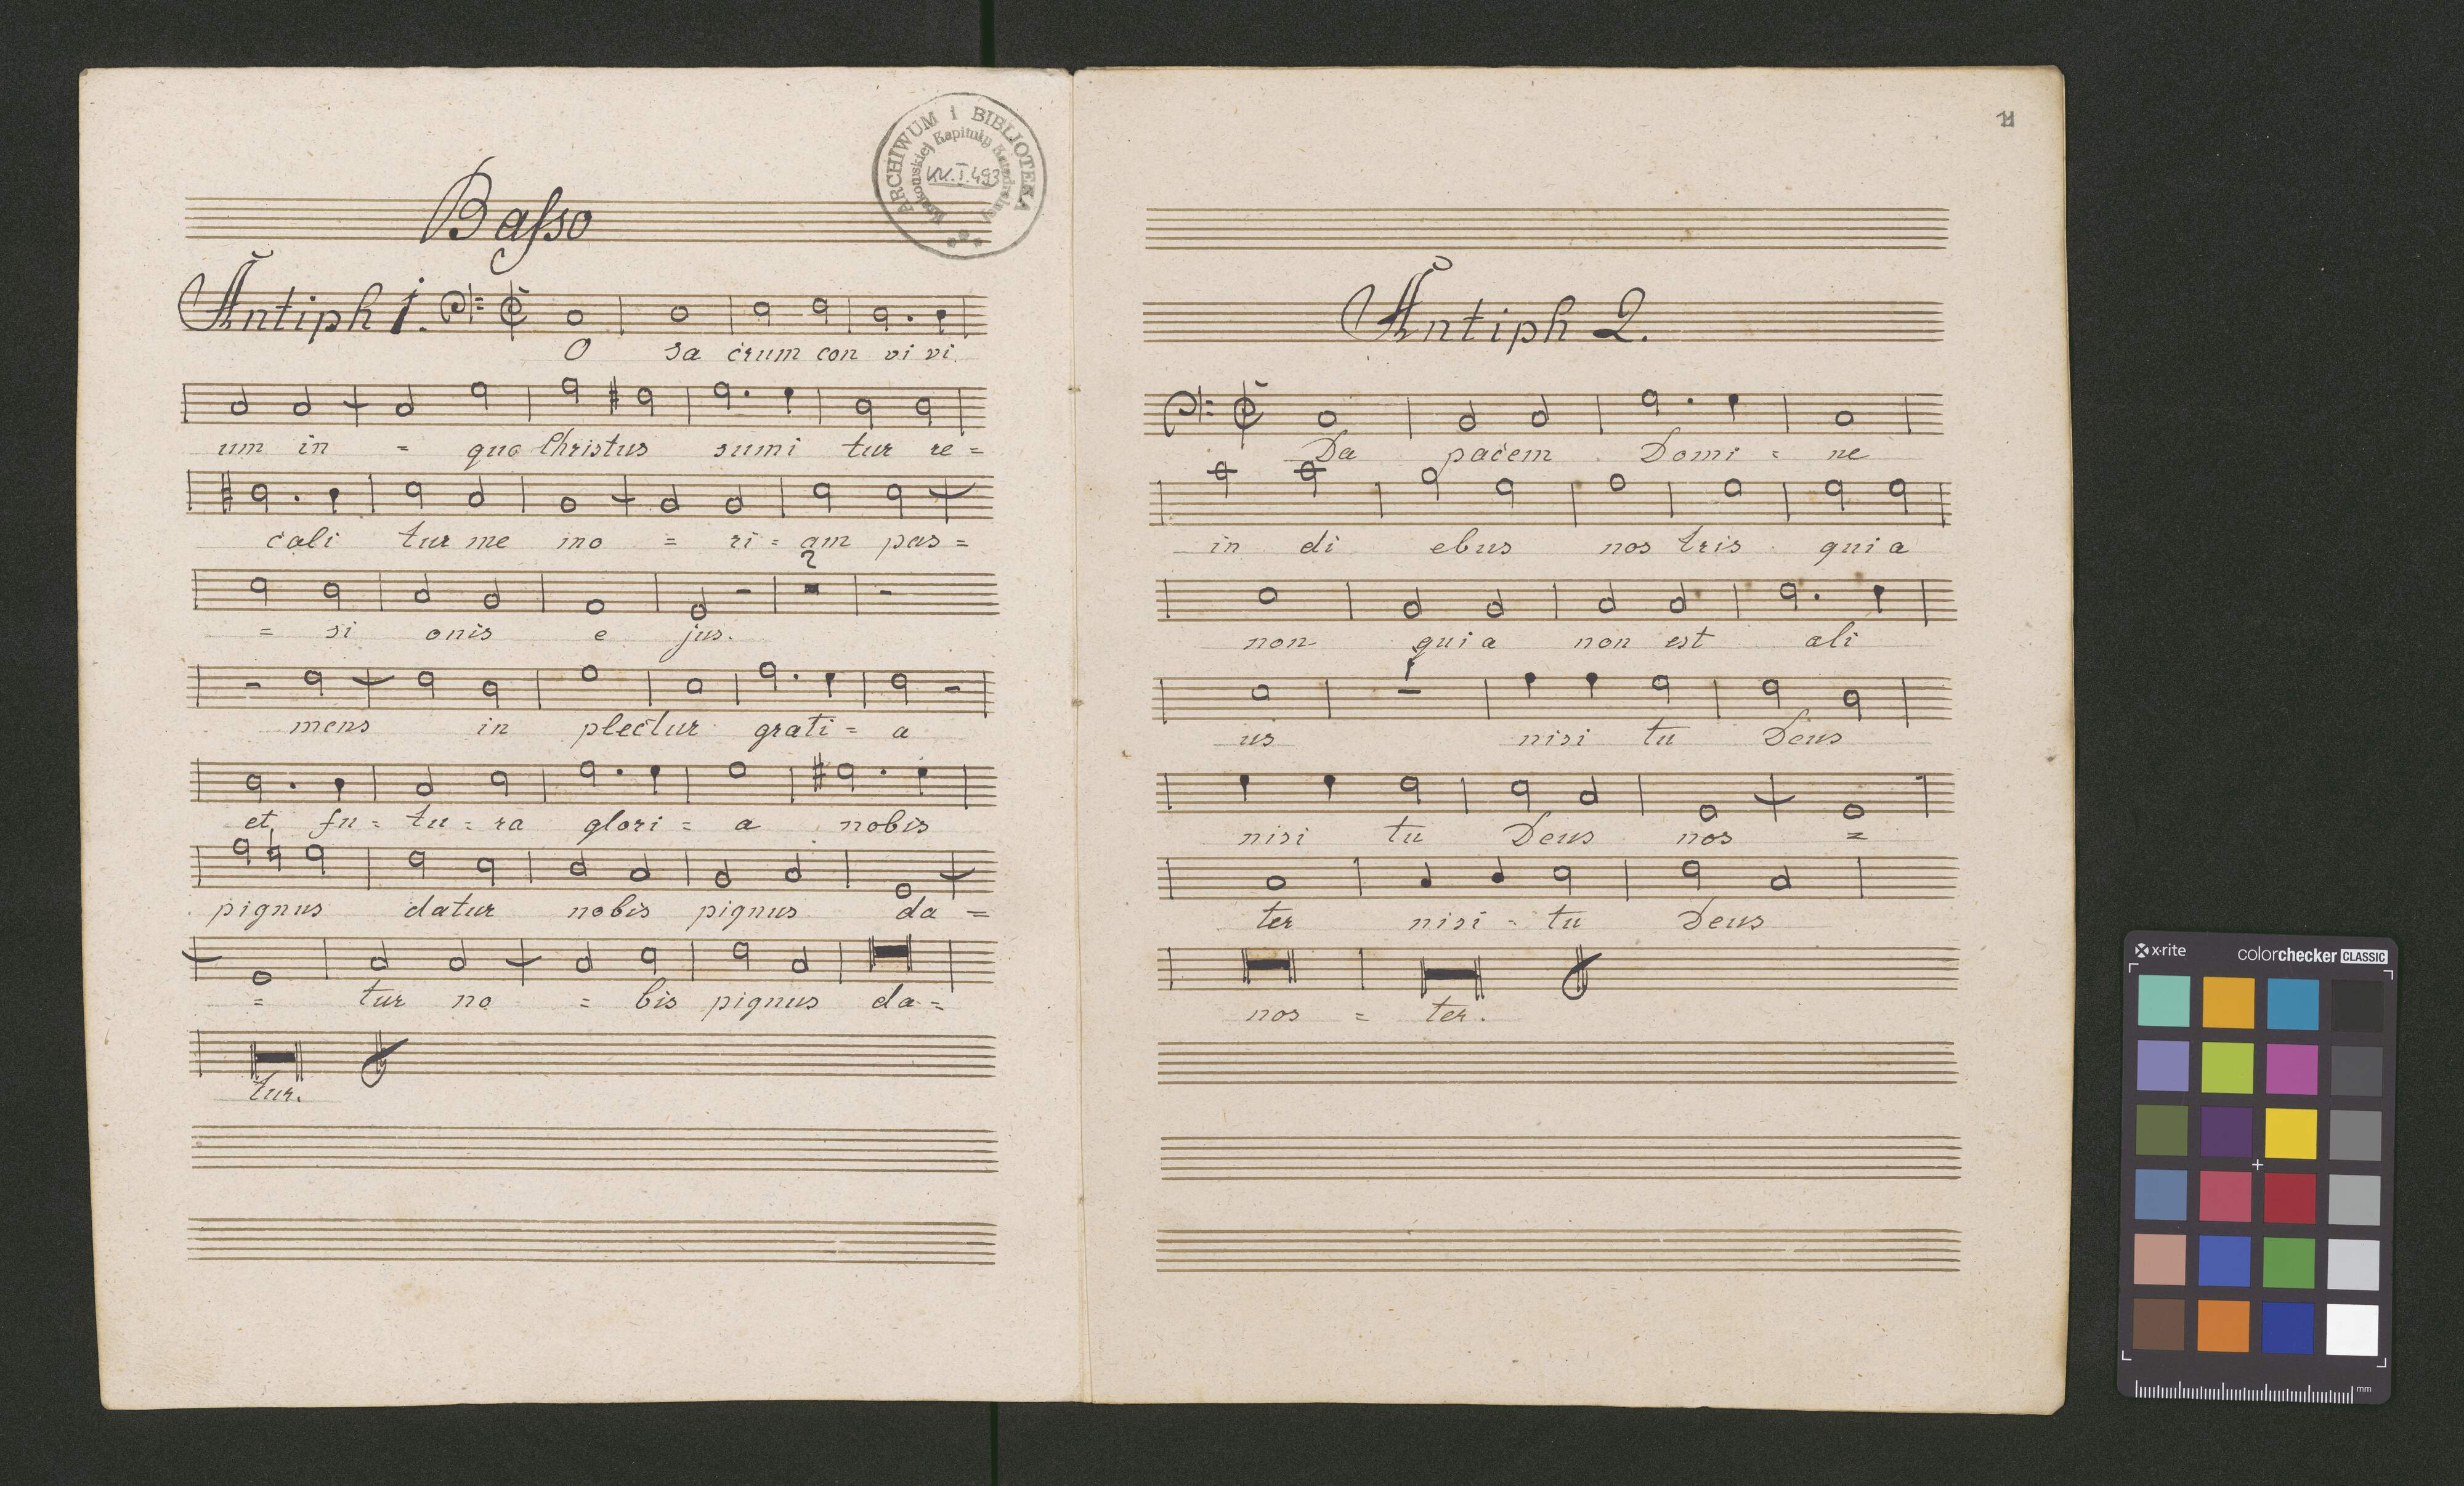 Basso
ARCHIWUM i BIBLIOTEKA
Krakowskiej Kapituły Katedralnej
KK.I.493
Antiph 1.
O sa crum con vi vi
um in = quo Christus sumi tur re =
coli tur me mo = ri = am pas =
2
= si onis e jus.
mens in plectur grati = a
et fu = tu = ra glori = a nobis
pignus datur nobis pignus da =
= tur no = bis pignus da =
tur.
Antiph 2.
Da pacem Domi = ne
in di ebus nos tris quia
non quia non est ali
1
us nisi tu Deus
nisi tu Deus nos =
ter nisi = tu Deus
nos = ter.
x·rite colorchecker CLASSIC
mm